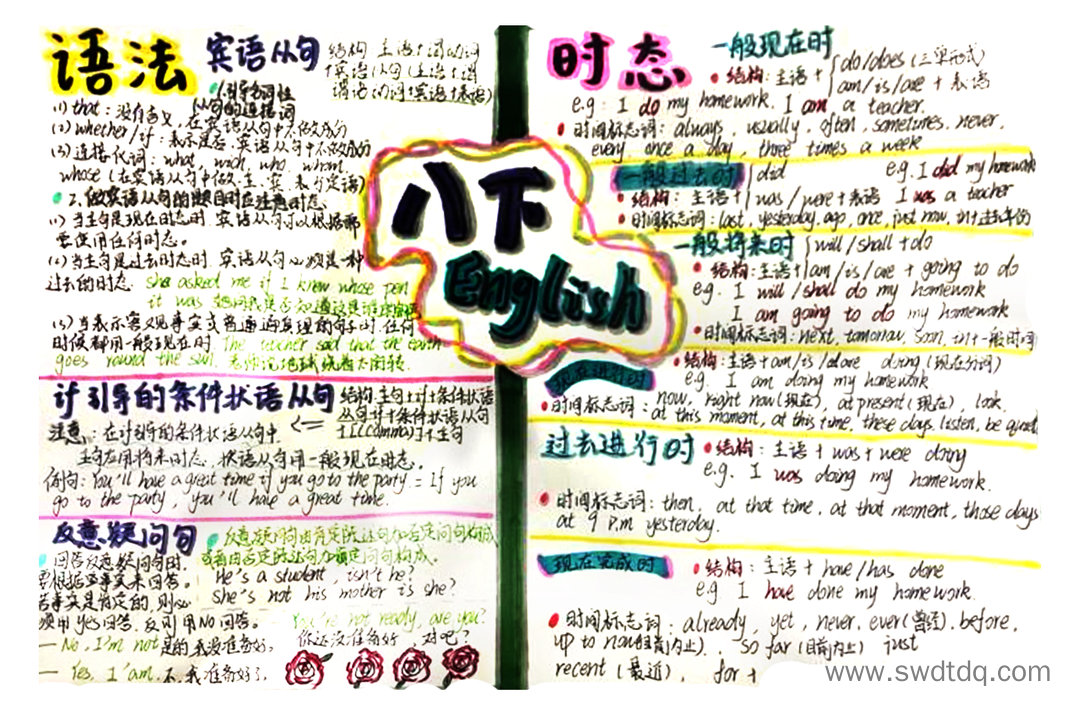 语法
宾语从句
结构: 主语+谓动词
+宾语从句(主语+谓
谓语动词+宾语+表语)
1.引导词性
从句的连接词
(1) that: 没有含义, 在宾语从句中不做成分
(2) whether/if: 表示是否, 宾语从句中不做成分
(3) 连接代词: what, which, who, whom,
whose (在宾语从句中做主、宾、表和定语)
2、做宾语从句的题目时应注意时态
(1) 当主句是现在时态时, 宾语从句可以根据需
要使用任何时态。
(2) 当主句是过去时态时, 宾语从句必须是一种
过去的时态. she asked me if I knew whose pen
it was
(3) 当表示客观事实或普通遍真理的句子时, 任何
时候都用一般现在时. The teacher said that the earth
goes round the sun. 老师说地球绕着太阳转.
if 引导的条件状语从句
结构: 主句+if+条件状语从句
从句: if+条件状语从句
+主句
<=
注意: 在if引导的条件状语从句中,
主句应用将来时态, 状语从句用一般现在时态。
例句: You'll have a great time if you go to the party. = If you
go to the party, you'll have a great time.
反意疑问句
反意疑问句由肯定陈述句加否定问句构成
或者由否定陈述句加肯定问句构成.
回答反意疑问句时,
要根据事实来回答。
若事实是肯定的, 则必
须用yes回答, 反则用No回答.
He's a student, isn't he?
She's not his mother is she?
— You're not ready, are you?
你还没准备好, 对吧?
— No, I'm not 是的,我没准备好,
— Yes, I am. 不, 我准备好了.
八下
English
时态
一般现在时
结构: 主语+ do/does (三单形式)
am/is/are + 表语
e.g: I do my homework. I am a teacher.
时间标志词: always, usually, often, sometimes, never,
every once a day, three times a week
一般过去时
结构: 主语+ did
was/were+表语
e.g. I did my homework
I was a teacher
时间标志词: last, yesterday, ago, once, just now, in+过去年份
一般将来时
结构: 主语+ will/shall + do
am/is/are + going to do
e.g. I will/shall do my homework
I am going to do my homework
时间标志词: next, tomorrow, soon, in+一般时间
现在进行时
结构: 主语+am/is/are doing (现在分词)
e.g. I am doing my homework
时间标志词: now, right now (现在), at present (现在), look,
at this moment, at this time, these days, listen, be quiet
过去进行时
结构: 主语+was+were doing
e.g. I was doing my homework.
时间标志词: then, at that time, at that moment, those days
at 9 p.m yesterday.
现在完成时
结构: 主语+have/has done
e.g I have done my homework.
时间标志词: already, yet, never, ever (曾经), before,
up to now(目前为止), so far (目前为止) just
recent (最近), for +
www.swdtdq.com